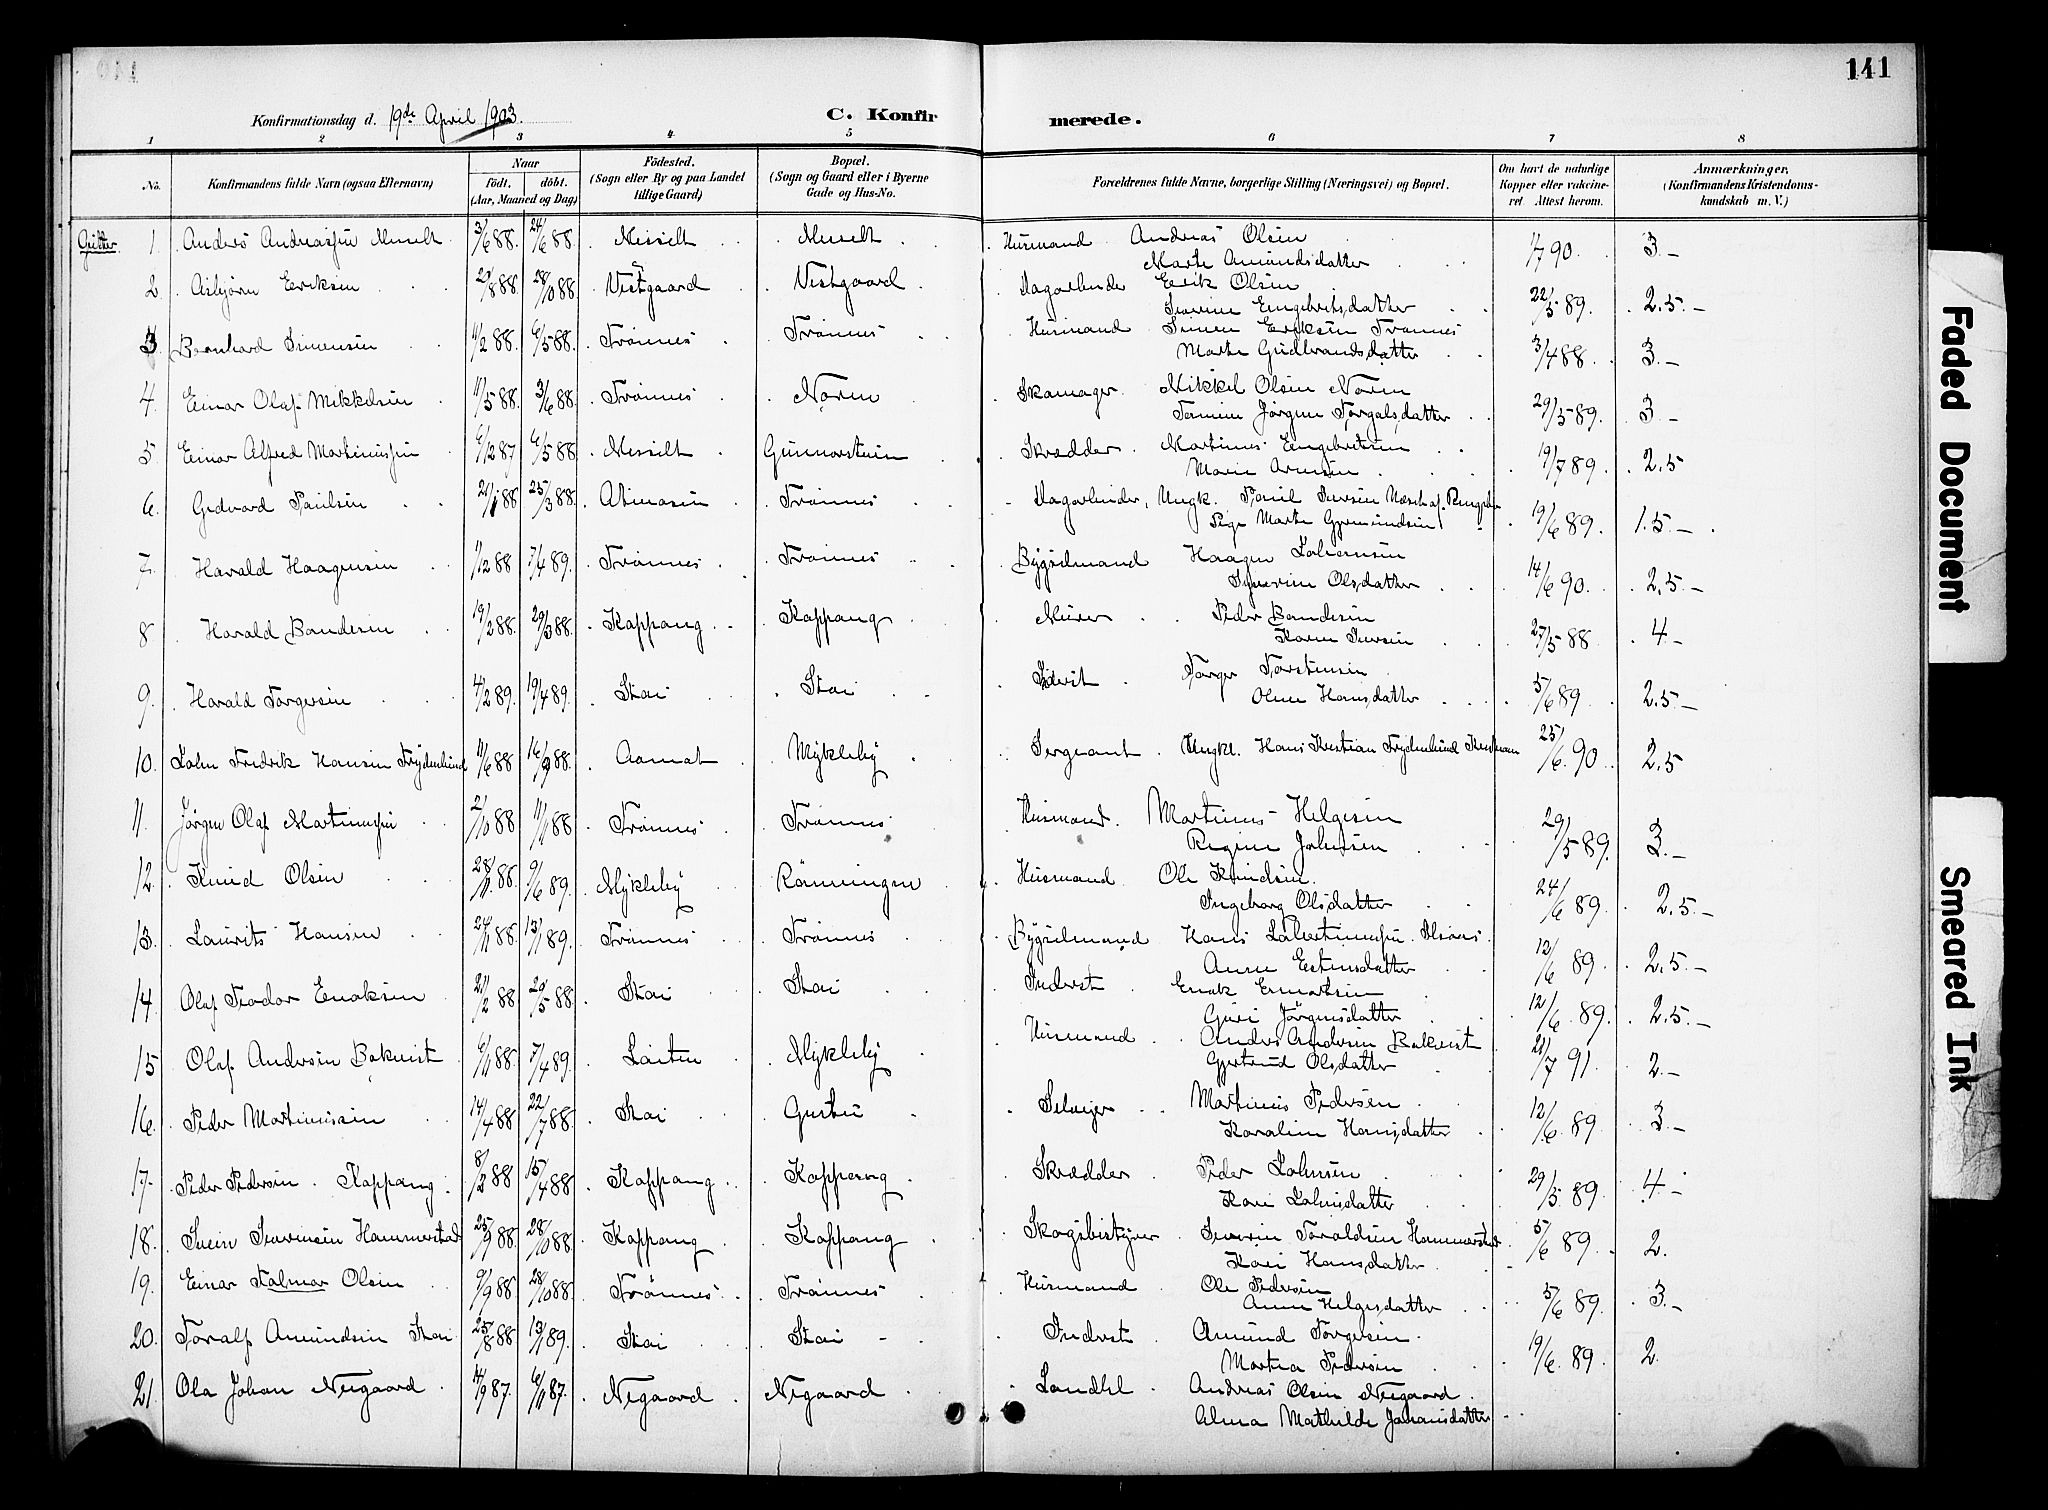 141
Konfirmationsdag d. 19de April 1903.
C. Konfirmerede.
1 2 3 4 5 6 7 8
No.
Konfirmandens fulde Navn (ogsaa Efternavn)
Naar
födt, döbt.
(Aar, Maaned og Dag)
Födested.
(Sogn eller By og paa Landet
tillige Gaard)
Bopæl.
(Sogn og Gaard eller i Byerne
Gade og Hus-No.
Forældrenes fulde Navne, borgerlige Stilling (Næringsvei) og Bopæl.
Om havt de naturlige
Kopper eller vakcine-
ret. Attest herom.
Anmærkninger,
(Konfirmandens Kristendoms-
kundskab m. V.)
Gutter.
1. Anders Andreassen Messelt 3/6 88. 24/6 88. Messelt Messelt Husmand Andreas Olsen 1/7 90. 3.-
Marte Amundsdatter
2. Asbjørn Eriksen 28/10 88. Vestgaard Vestgaard Dagarbeider Erik Olsen 22/5 89. 2.5.-
Engebretsdatter
3. Bernhard Simensen 11/2 88. 6/5 88. Trønnes Trønnes Husmand Simen Eriksen Trønnes 3/4 88. 3.-
Marte Gudbrandsdatter
4. Einar Olaf Mikkelsen 11/5 88. 3/6 88. Trønnes Noren Skomager Mikkel Olsen Noren 29/5 89. 3.-
5. Einar Alfred Martinussen 6/12 87 6/5 88. Messelt Gunnarstuen Skrædder Martinus Engebretsen 19/7 89. 2.5
Marie
6. Paulsen 21/1 88 25/3 88. Trønnes Dagarbeider, Ungk. Paul Iversen 19/6 89. 1.5.-
Pige Marte
7. Harald Haagensen 1/12 88 7/4 89. Trønnes Trønnes Bygselmand Haagen Johansen 14/6 90. 2.5.-
Olsdatter
8 Harald Bandesen 19/2 88. 29/3 88. Koppang Koppang Murer Peder Bandesen 27/5 88 4-
Karen Iversen
9. Harald Torgersen 4/2 89. 19/4 89. Stai Stai Torger Torstensen 5/6 89. 2.5-
Oline Hansdatter
10. John Fredrik Hansen Frydenlund 11/6 88 16/9 88. Aamot Mykleby Sergeant Ungk. Hans Kristian Frydenlund 25/6 90 2.5
11. Jørgen Olaf Martinussen 2/10 88 11/11 88 Trønnes Trønnes Husmand Martinus Helgesen 29/5 89. 3.-
Regine Johnsen
12. Knud Olsen 28/11 88. 9/6 89. Mykleby Rønningen Husmand Ole Knudsen 24/6 89. 2.5.-
Ingeborg Olsdatter
13. Laurits Hansen 24/11 88. 13/1 89. Trønnes Trønnes Bygselmand Hans 12/6 89. 2.5.-
Anne Estensdatter
14. Olaf Teodor Enoksen 21/2 88 20/5 88. Stai Stai Inderst Enok 12/6 89. 2.5.-
Guri Jørgensdatter
15 Olaf Andersen Bakvist 6/11 88. 7/4 89. Løiten Mykleby Husmand Anders Andersen Bakvist 21/7 91 2.-
Gjertrud Olsdatter
16. Peder Martinussen 14/4 88 22/7 88. Stai Martinus Pedersen 12/6 89 3.-
Karoline Hansdatter
17. Peder Pedersen Koppang. 8/2 88 15/4 88 Koppang Koppang Skrædder Peder Johnsen 29/5 89. 4.-
Kari Johnsdatter
18. Svein Severinsen Hammerstad 25/9 88. 28/10 88. Koppang Koppang Skogsbestyrer Severin Toraldsen Hammerstad 5/6 89. 2.
Kari Hansdatter
19. Einar Halmar Olsen 9/9 88. 28/10 88. Trønnes Trønnes Husmand Ole Pedersen 5/6 89. 3.-
Anne Helgesdatter
20. Toralf Amundsen Stai 25/8 88 13/1 89. Stai Stai - Inderst Amund Torgersen 19/6 89 2.
Martea Pedersen
21. Ola Johan Negaard 14/9 87. 6/11 87. Negaard Negaard Landhl. Andreas Olsen Negaard
Alma Mathilde Johansdatter
Faded Document
Smeared Ink